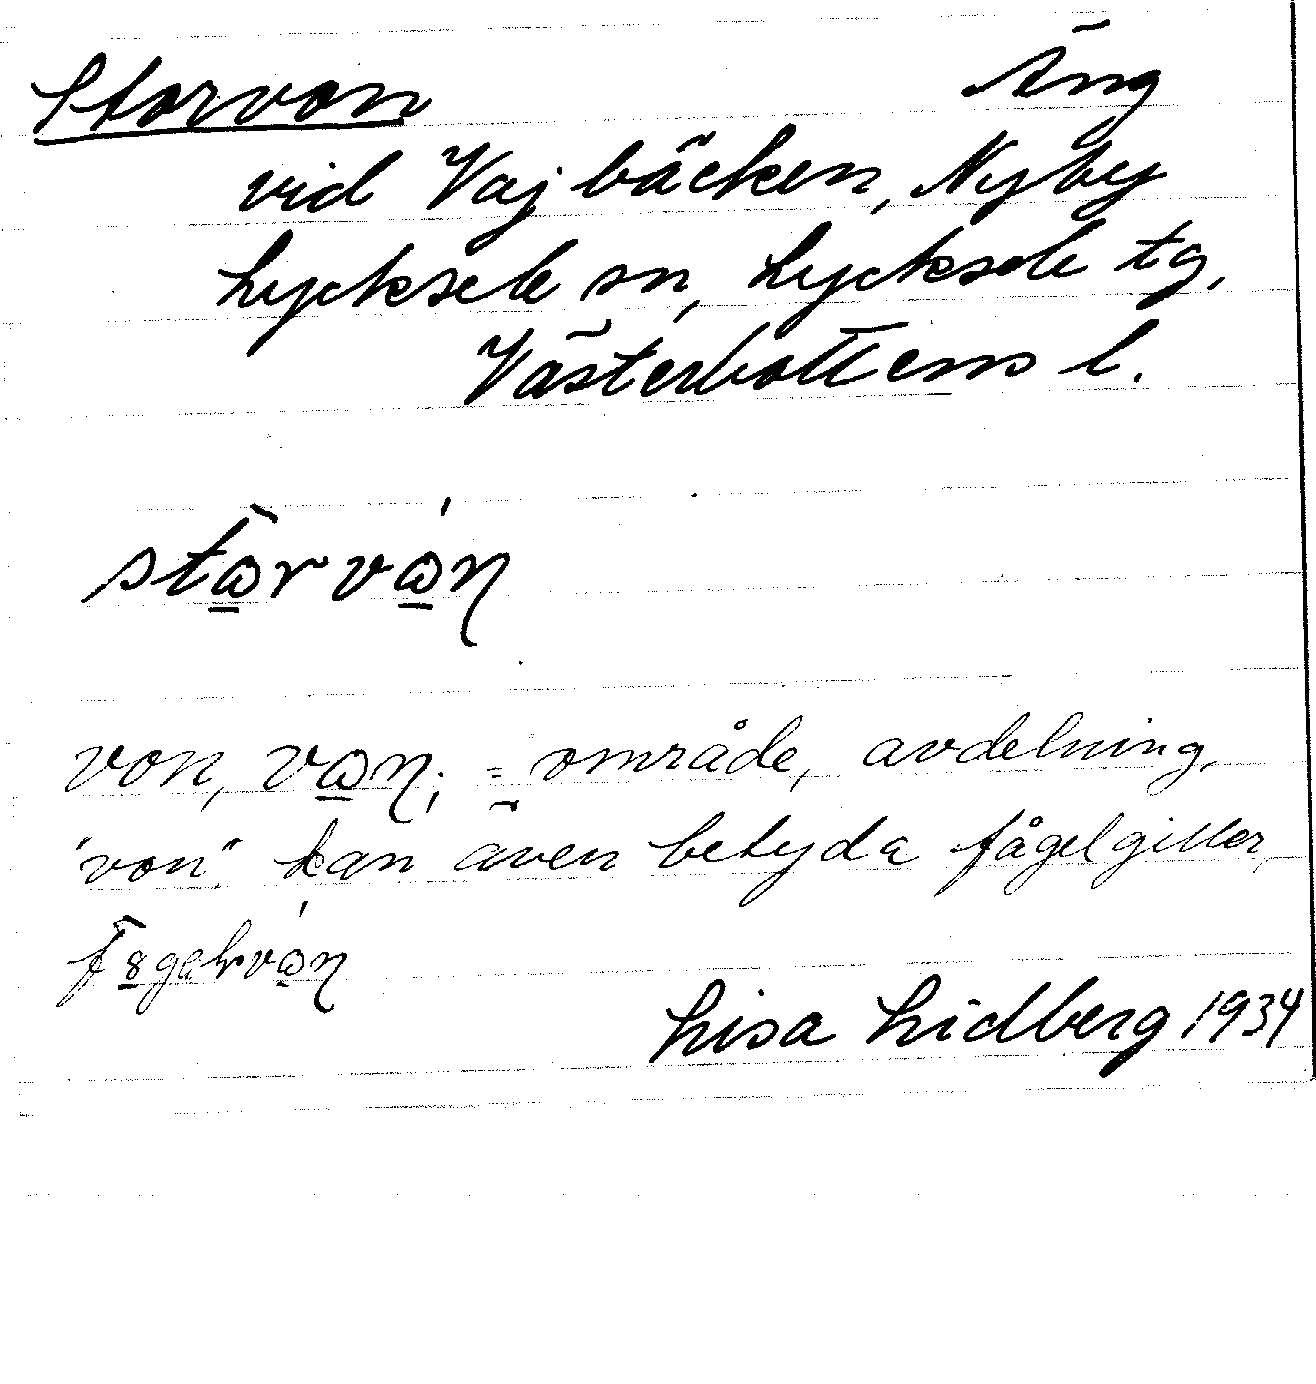 Storvon Äng
vid Vajbäcken, Nyby
Lycksele sn, Lycksele tg,
Västerbottens l.
stɷ̠̀rvɷ̠́n
von, vɷ̠n; = område, avdelning,
"von" kan även betyda fågelgiller,
Lisa Lidberg 1934